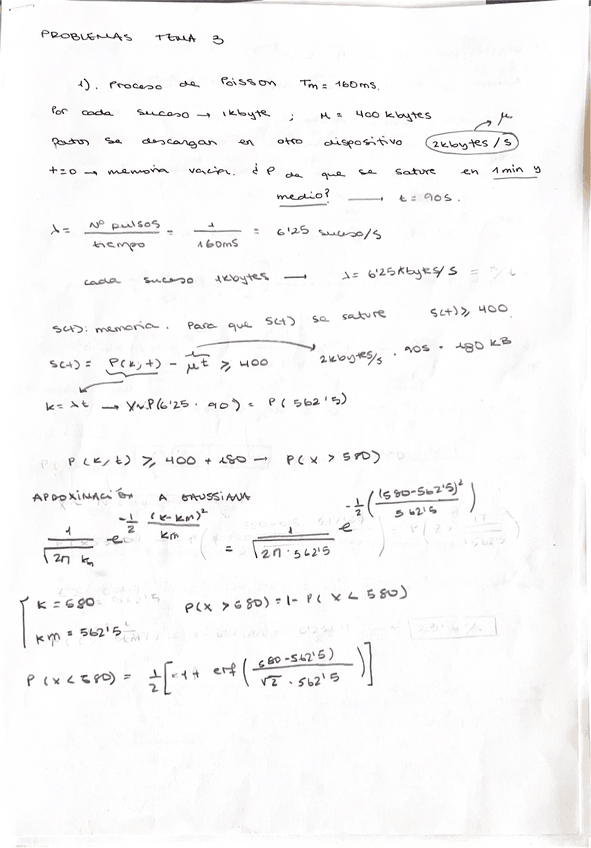 PROBLEMAS TEMA 3
1). Proceso de Poisson Tm = 160ms.
Por cada suceso → 1kbyte ; M = 400 kbytes
Datos se descargan en otro dispositivo 2kbytes/s → μ
t=0 → memoria vacía. ¿ P de que se sature en 1 min y
medio? → t = 90s.
λ = Nº pulsos / tiempo = 1 / 160ms = 6'25 suceso/s
cada suceso 1kbytes → λ = 6'25 kbytes/s
S(t): memoria. Para que S(t) se sature S(t) ≥ 400
S(t) = P(k,t) - μt ≥ 400 2kbytes/s · 90s = 180 KB
k = λt → X~P(6'25 · 90) = P(562'5)
P(k,t) ≥ 400 + 180 → P(x > 580)
APROXIMACIÓN A GAUSSIANA
1/√(2π km) e^(-1/2 (k-km)²/km) = 1/√(2π · 562'5) e^(-1/2 ((580-562'5)²/562'5))
k = 580 P(x > 580) = 1 - P(x < 580)
km = 562'5
P(x < 580) = 1/2 [-1+ erf((580-562'5)/(√2 · 562'5))]